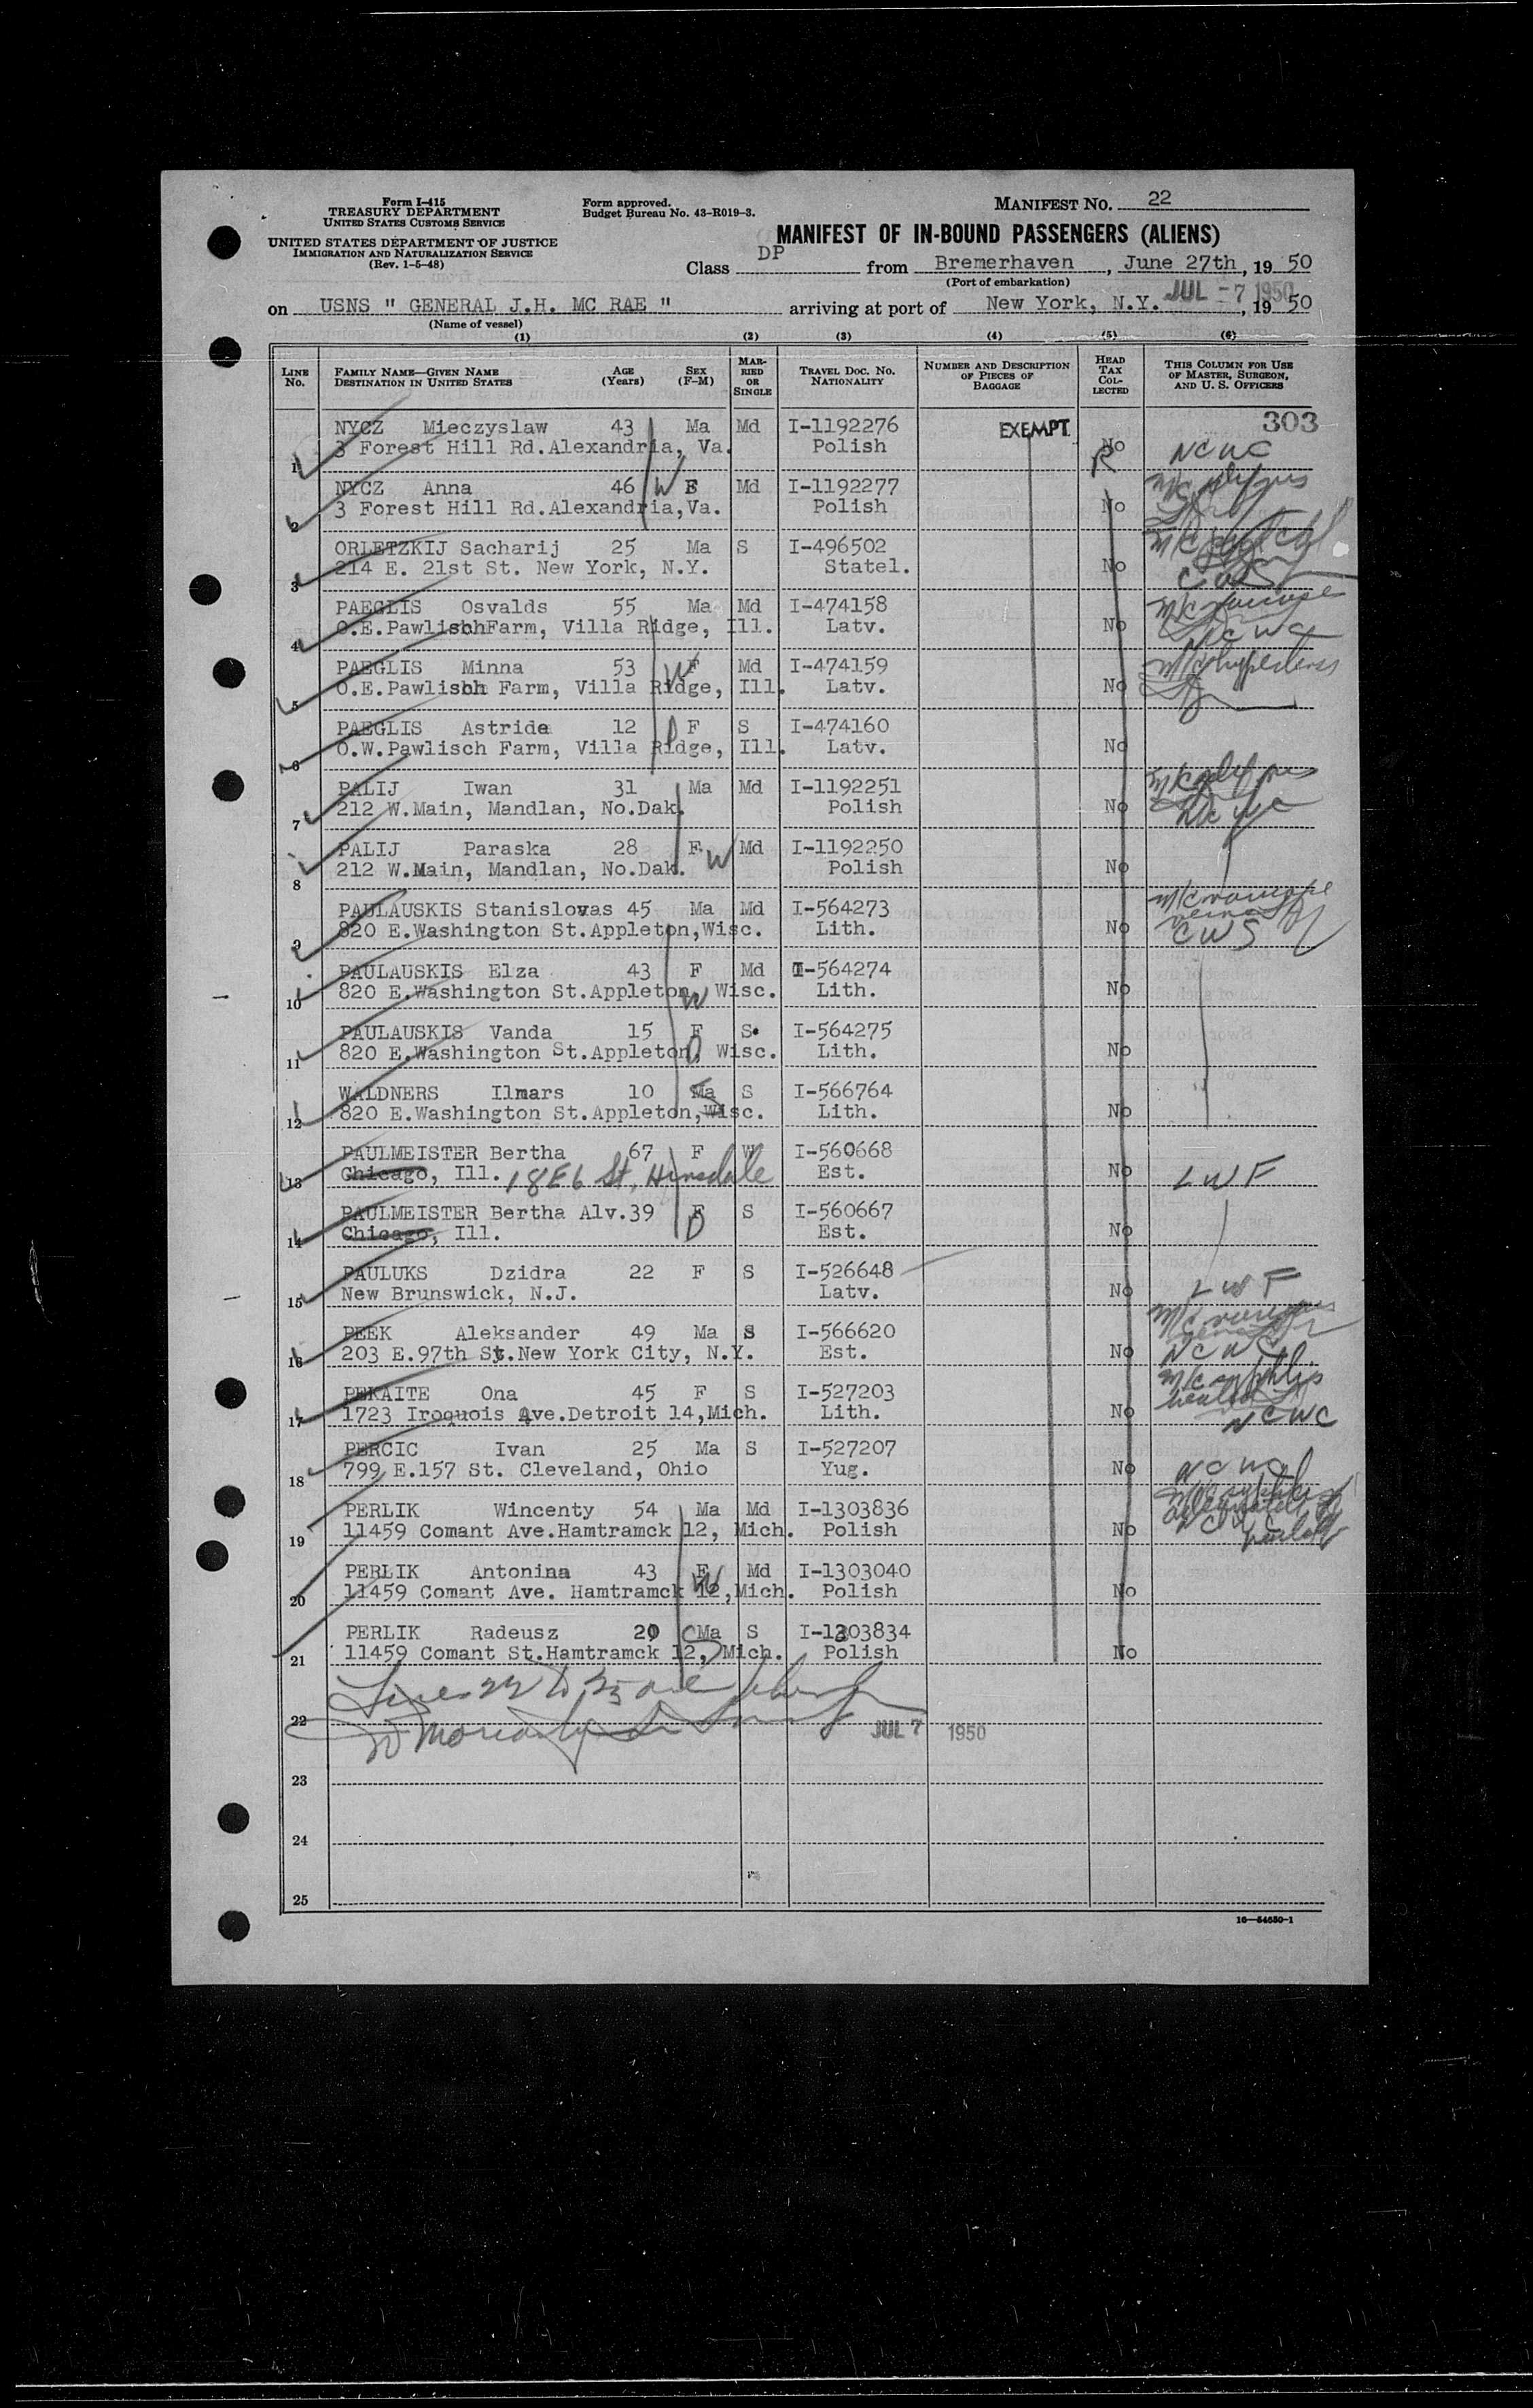 Form I-415
TREASURY DEPARTMENT
UNITED STATES CUSTOMS SERVICE
UNITED STATES DEPARTMENT OF JUSTICE
IMMIGRATION AND NATURALIZATION SERVICE
(Rev. 1-5-48)
Form approved.
Budget Bureau No. 43-R019-3.
MANIFEST NO. 22
MANIFEST OF IN-BOUND PASSENGERS (ALIENS)
Class DP from Bremerhaven, June 27th, 19 50
(Port of embarkation)
JUL -7 1950
on USNS " GENERAL J.H. MC RAE " arriving at port of New York, N.Y. , 19 50
(Name of vessel)
(1) (2) (3) (4) (5) (6)
LINE No. FAMILY NAME—GIVEN NAME DESTINATION IN UNITED STATES AGE (Years) SEX (F-M) MARRIED OR SINGLE TRAVEL DOC. NO. NATIONALITY NUMBER AND DESCRIPTION OF PIECES OF BAGGAGE HEAD TAX COLLECTED THIS COLUMN FOR USE OF MASTER, SURGEON, AND U. S. OFFICERS
303
NYCZ Mieczyslaw 43 Ma Md I-1192276 EXEMPT
1 3 Forest Hill Rd.Alexandria, Va. Polish No NCWC
NYCZ Anna 46 W F Md I-1192277
2 3 Forest Hill Rd.Alexandria,Va. Polish No
ORLETZKIJ Sacharij 25 Ma S I-496502
3 214 E. 21st St. New York, N.Y. Statel. No CWS
PAEGLIS Osvalds 55 Ma Md I-474158
4 O.E.PawlischFarm, Villa Ridge, Ill. Latv. No NCWC
PAEGLIS Minna 53 W F Md I-474159
5 O.E.Pawlisch Farm, Villa Ridge, Ill. Latv. No
PAEGLIS Astride 12 D F S I-474160
6 O.W.Pawlisch Farm, Villa Ridge, Ill. Latv. No
PALIJ Iwan 31 Ma Md I-1192251
7 212 W.Main, Mandlan, No.Dak. Polish No NCWC
PALIJ Paraska 28 F W Md I-1192250
8 212 W.Main, Mandlan, No.Dak. Polish No
PAULAUSKIS Stanislovas 45 Ma Md I-564273
9 820 E.Washington St.Appleton,Wisc. Lith. No CWS
PAULAUSKIS Elza 43 F Md I-564274
10 820 E.Washington St.Appleton, W Wisc. Lith. No
PAULAUSKIS Vanda 15 F S I-564275
11 820 E.Washington St.Appleton, D Wisc. Lith. No
WALDNERS Ilmars 10 Ma S I-566764
12 820 E.Washington St.Appleton,Wisc. Lith. No
PAULMEISTER Bertha 67 F W I-560668
13 Chicago, Ill. 18 E 6 St, Hinsdale Est. No LWF
PAULMEISTER Bertha Alv.39 F D S I-560667
14 Chicago, Ill. Est. No
PAULUKS Dzidra 22 F S I-526648
15 New Brunswick, N.J. Latv. No LWF
PEEK Aleksander 49 Ma S I-566620
16 203 E.97th St.New York City, N.Y. Est. No NCWC
PEKAITE Ona 45 F S I-527203
17 1723 Iroquois Ave.Detroit 14,Mich. Lith. No NCWC
PERCIC Ivan 25 Ma S I-527207
18 799 E.157 St. Cleveland, Ohio Yug. No NCWC
PERLIK Wincenty 54 Ma Md I-1303836
19 11459 Comant Ave.Hamtramck 12, Mich. Polish No NCWC
PERLIK Antonina 43 F W Md I-1303040
20 11459 Comant Ave. Hamtramck 12,Mich. Polish No
PERLIK Radeusz 20 Ma S I-1303834
21 11459 Comant St.Hamtramck 12, Mich. Polish No
Lines 22 to 25 are
22 JUL 7 1950
23
24
25
16—54650-1